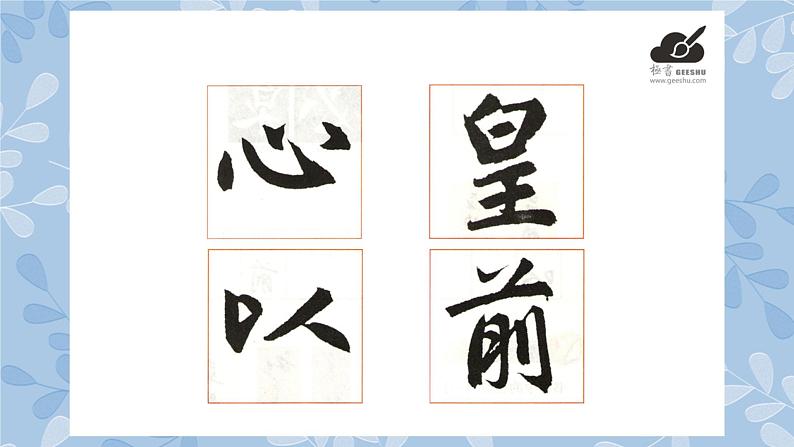 極書 GEESHU
www.geeshu.com
心 皇
以 前